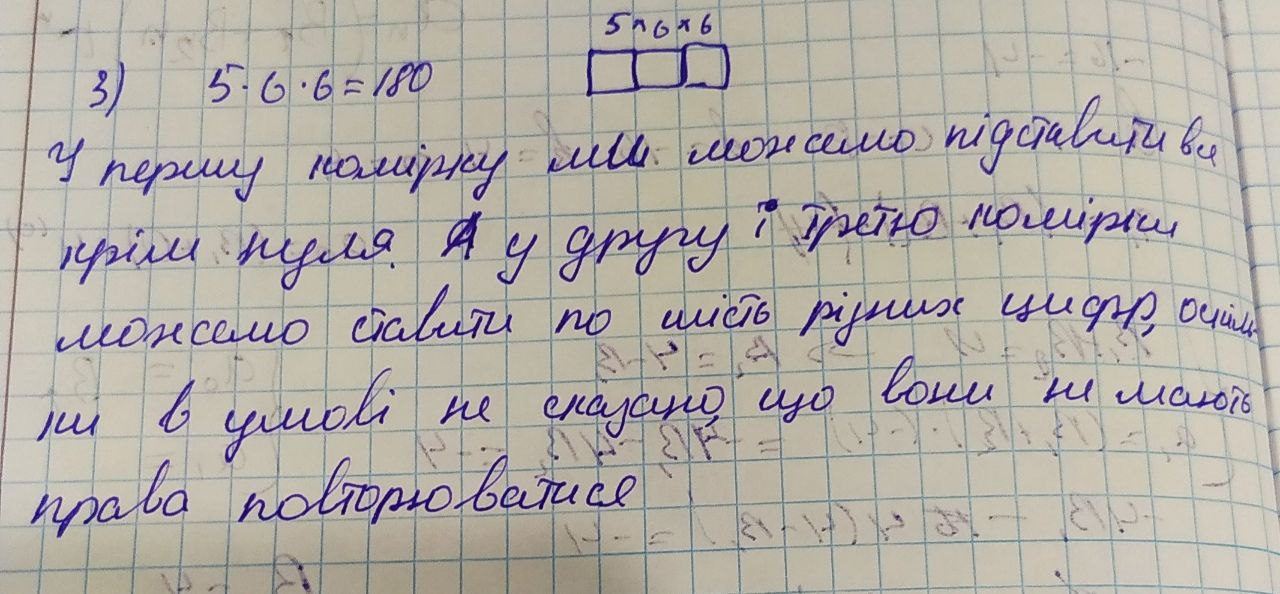 5 × 6 × 6
3) 5 · 6 · 6 = 180
У першу комірку ми можемо підставити всі
крім нуля. А у другу і третю комірки
можемо ставити по шість різних цифр, оскіль-
ки в умові не сказано, що вони не мають
права повторюватися